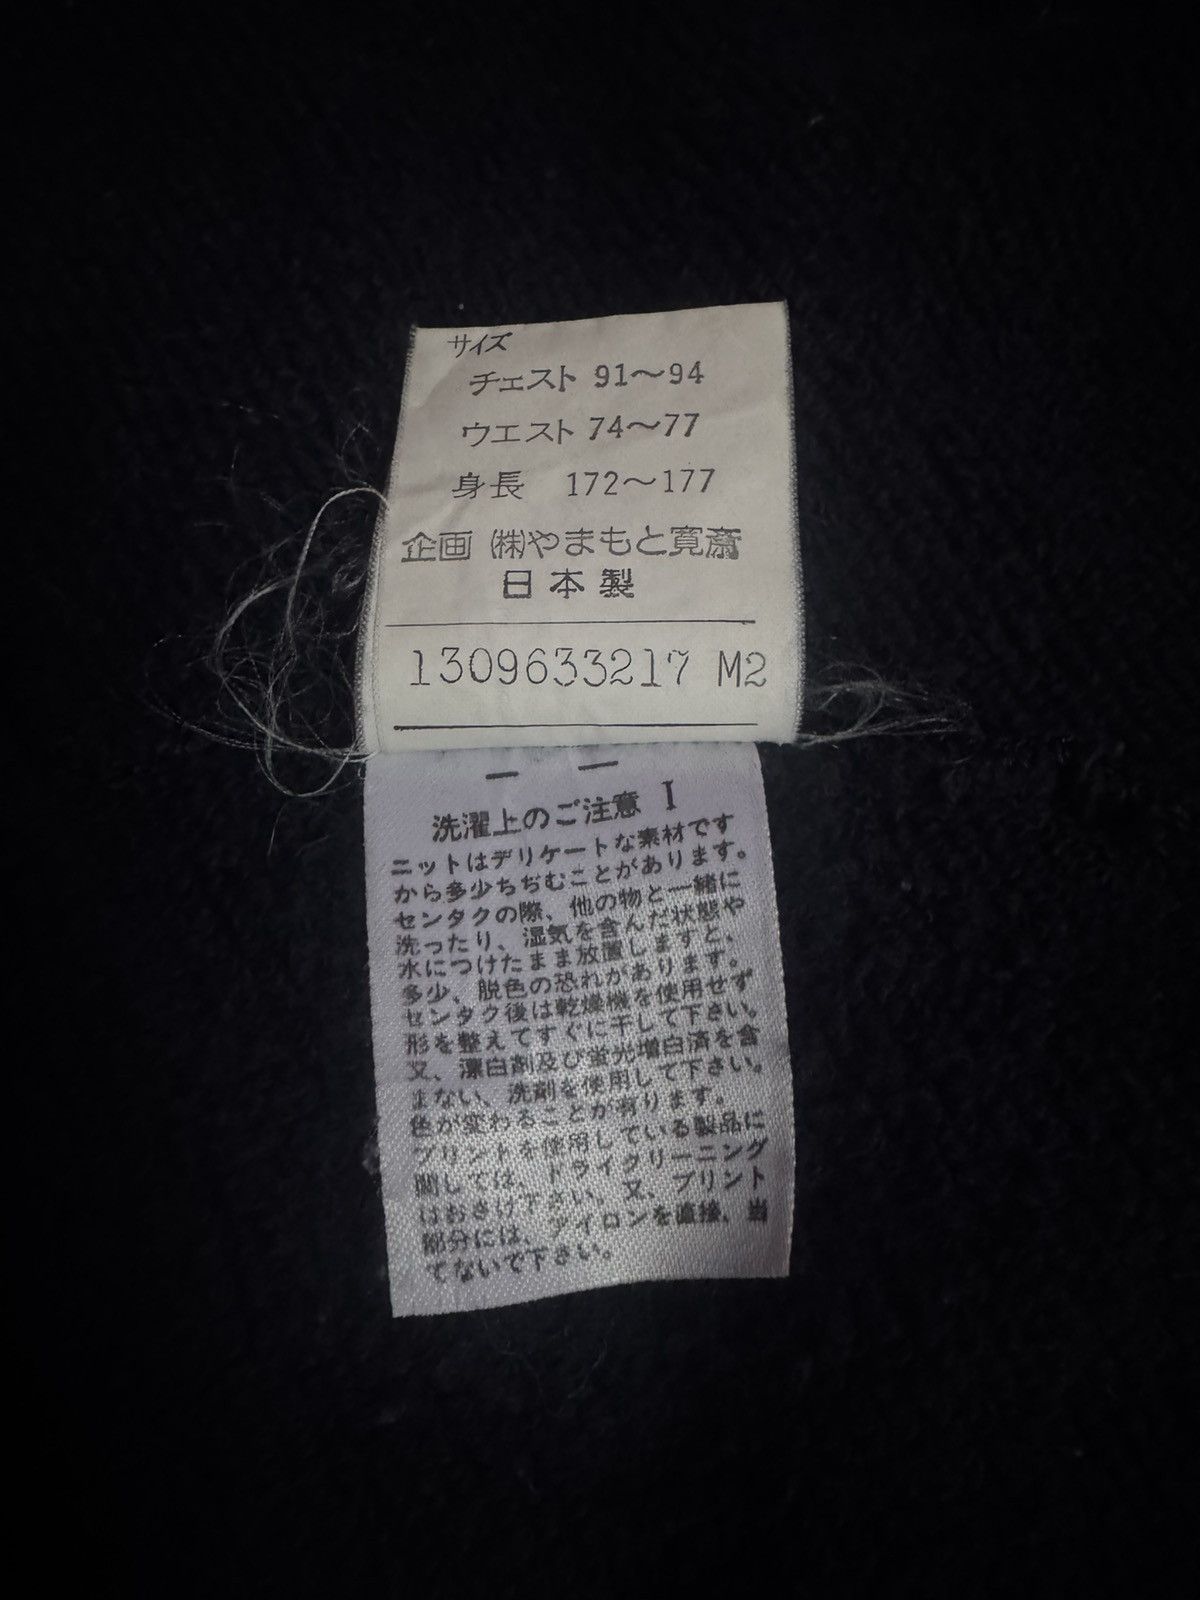 サイズ
チェスト 91〜94
ウエスト 74〜77
身長 172〜177
企画 ㈱やまもと寛斎
日本製
1309633217 M2
洗濯上のご注意 I
ニットはデリケートな素材です
から多少ちぢむことがあります。
センタクの際、他の物と一緒に
洗ったり、湿気を含んだ状態や
水につけたまま放置しますと、
多少、脱色の恐れがあります。
センタク後は乾燥機を使用せず
形を整えてすぐに干して下さい。
又、漂白剤及び蛍光増白済を含
まない、洗剤を使用して下さい。
色が変わることが有ります。
プリントを使用している製品に
関しては、ドライクリーニング
はおさけ下さい。又、プリント
部分には、アイロンを直接、当
てないで下さい。